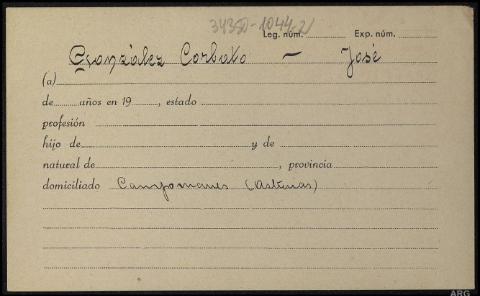 34350-1044-2
Leg. núm. Exp. núm.
González Corbato — José
(a)
de años en 19 , estado
profesión
hijo de y de
natural de , provincia
domiciliado Campomanes (Asturias)
ARG